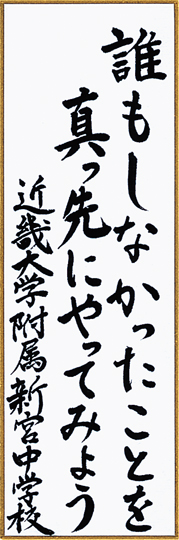 誰もしなかったことを
真っ先にやってみよう
近畿大学附属新宮中学校